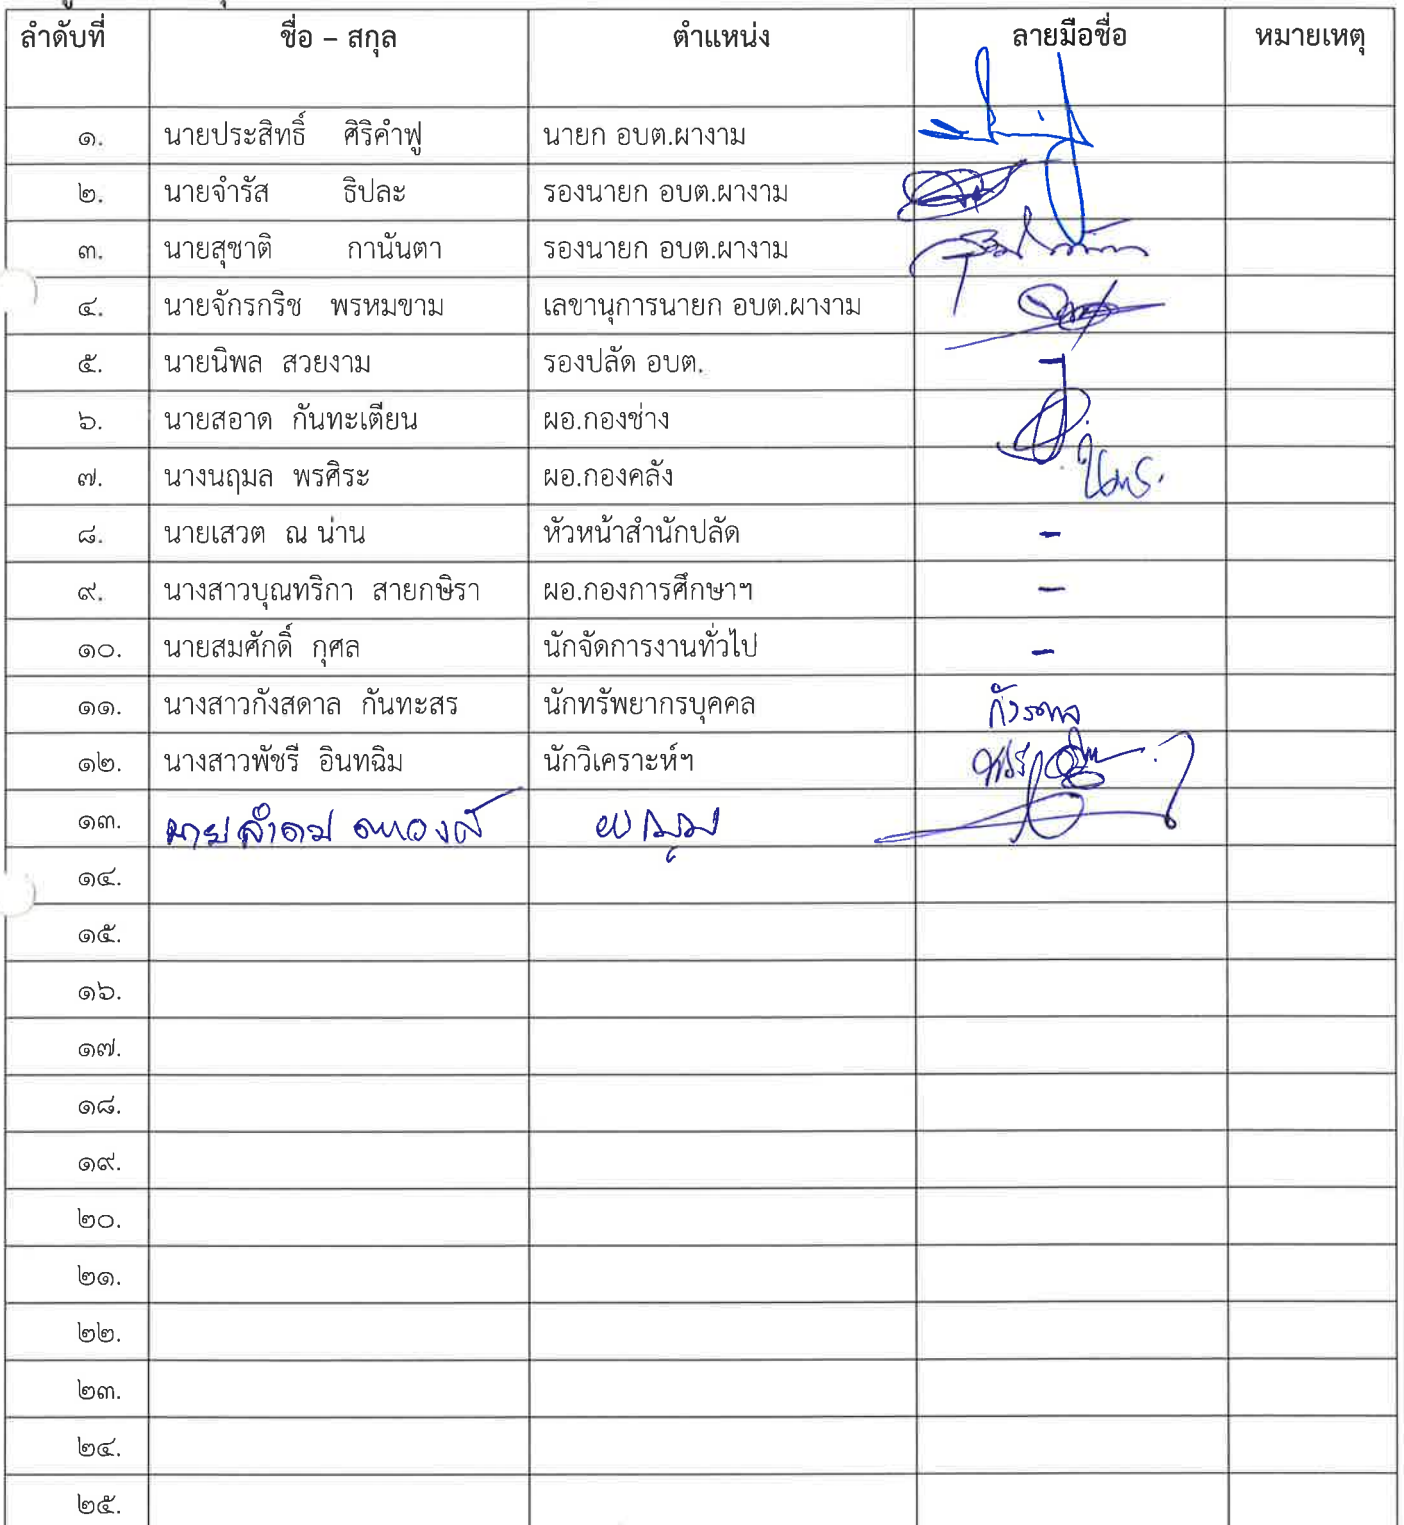 ลำดับที่ ชื่อ – สกุล ตำแหน่ง ลายมือชื่อ หมายเหตุ
๑. นายประสิทธิ์ ศิริคำฟู นายก อบต.ผางาม
๒. นายจำรัส ธิปละ รองนายก อบต.ผางาม
๓. นายสุชาติ กานันตา รองนายก อบต.ผางาม
๔. นายจักรกริช พรหมขาม เลขานุการนายก อบต.ผางาม
๕. นายนิพล สวยงาม รองปลัด อบต. -
๖. นายสอาด กันทะเตียน ผอ.กองช่าง
๗. นางนฤมล พรศิระ ผอ.กองคลัง
๘. นายเสวต ณ น่าน หัวหน้าสำนักปลัด -
๙. นางสาวบุณทริกา สายกษิรา ผอ.กองการศึกษาฯ -
๑๐. นายสมศักดิ์ กุศล นักจัดการงานทั่วไป -
๑๑. นางสาวกังสดาล กันทะสร นักทรัพยากรบุคคล กังสดาล
๑๒. นางสาวพัชรี อินทฉิม นักวิเคราะห์ฯ พัชรี
๑๓. นาย
๑๔.
๑๕.
๑๖.
๑๗.
๑๘.
๑๙.
๒๐.
๒๑.
๒๒.
๒๓.
๒๔.
๒๕.